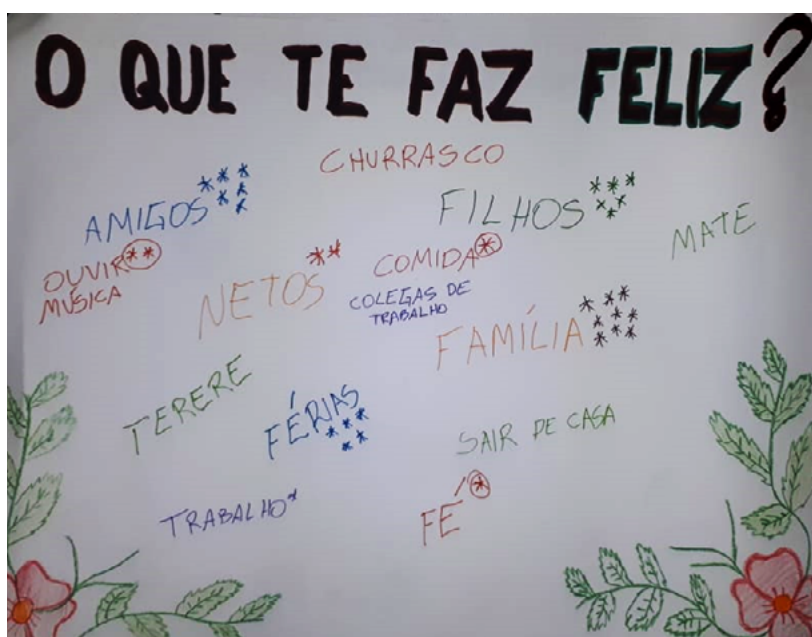 O QUE TE FAZ FELIZ?
CHURRASCO
AMIGOS ******
FILHOS ******
MATE
OUVIR **
MÚSICA
NETOS **
COMIDA *
COLEGAS DE
TRABALHO
FAMÍLIA *********
TERERE
FÉRIAS ******
SAIR DE CASA
TRABALHO *
FÉ *